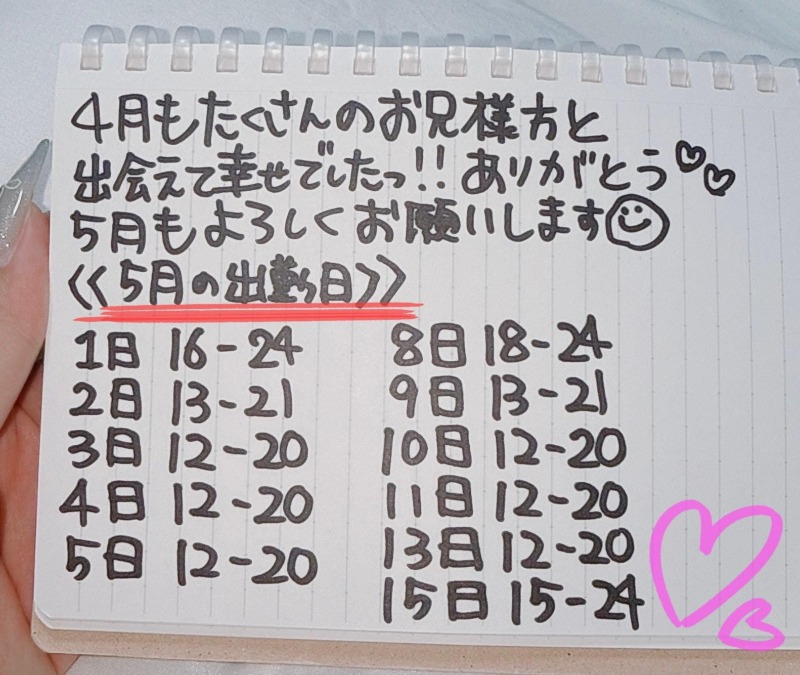 4月もたくさんのお兄様方と
出会えて幸せでしたっ!! ありがとう♡♡
5月もよろしくお願いします☺
《5月の出勤日》
1日 16-24
2日 13-21
3日 12-20
4日 12-20
5日 12-20
8日 18-24
9日 13-21
10日 12-20
11日 12-20
13日 12-20
15日 15-24